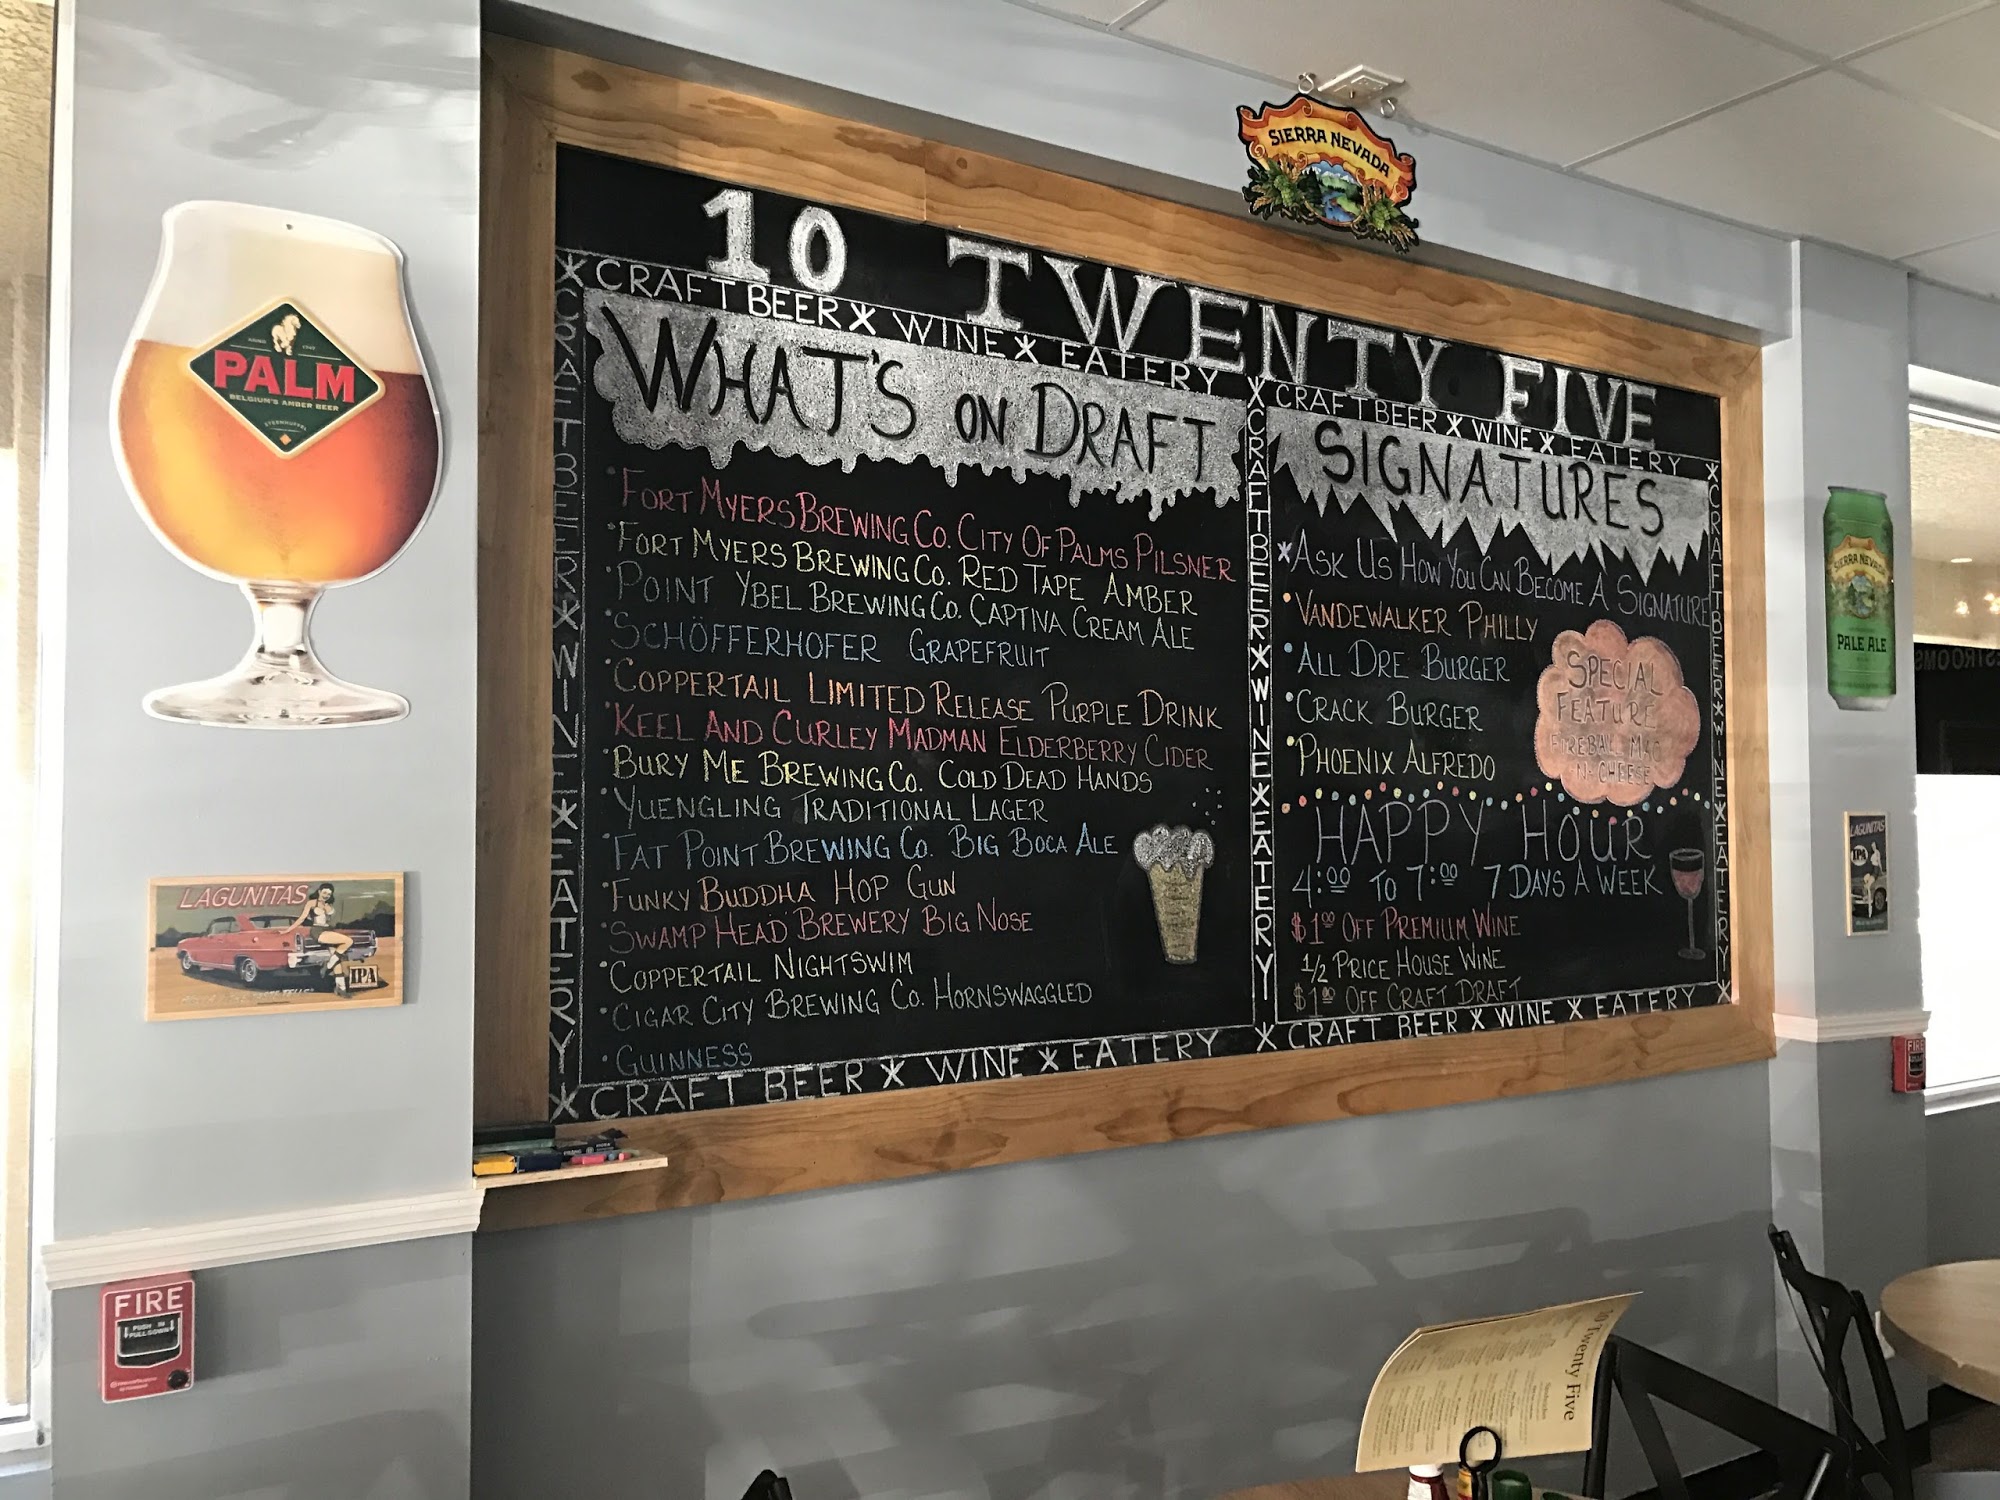 SIERRA NEVADA
PALM
BELGIUM'S AMBER BEER
LAGUNITAS
IPA
FIRE
PUSH IN
PULL DOWN
10 TWENTY FIVE
CRAFT BEER WINE EATERY
CRAFT BEER WINE EATERY
CRAFT BEER WINE EATERY
CRAFT BEER WINE EATERY
CRAFT BEER WINE EATERY
WHAT'S ON DRAFT
FORT MYERS BREWING CO. CITY OF PALMS PILSNER
FORT MYERS BREWING CO. RED TAPE AMBER
POINT YBEL BREWING CO. CAPTIVA CREAM ALE
SCHÖFFERHOFER GRAPEFRUIT
COPPERTAIL LIMITED RELEASE PURPLE DRINK
KEEL AND CURLEY MADMAN ELDERBERRY CIDER
BURY ME BREWING CO. COLD DEAD HANDS
YUENGLING TRADITIONAL LAGER
FAT POINT BREWING CO. BIG BOCA ALE
FUNKY BUDDHA HOP GUN
SWAMP HEAD BREWERY BIG NOSE
COPPERTAIL NIGHTSWIM
CIGAR CITY BREWING CO. HORNSWAGGLED
GUINNESS
SIGNATURES
ASK US HOW YOU CAN BECOME A SIGNATURE
VANDEWALKER PHILLY
ALL DRE BURGER
CRACK BURGER
PHOENIX ALFREDO
SPECIAL
FEATURE
FIREBALL MAC
-N- CHEESE
HAPPY HOUR
4:00 TO 7:00 7 DAYS A WEEK
$1.00 OFF PREMIUM WINE
1/2 PRICE HOUSE WINE
$1.00 OFF CRAFT DRAFT
CRAFT BEER WINE EATERY
CRAFT BEER WINE EATERY
SIERRA NEVADA
PALE ALE
LAGUNITAS
IPA
FIRE
RESTROOMS
10 Twenty Five